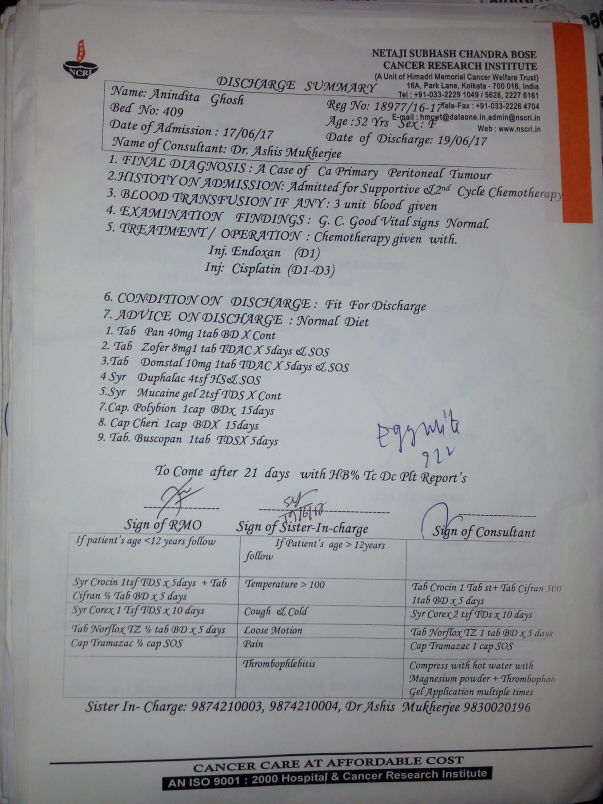 NCRI
NETAJI SUBHASH CHANDRA BOSE
CANCER RESEARCH INSTITUTE
(A Unit of Himadri Memorial Cancer Welfare Trust)
16A, Park Lane, Kolkata - 700 016, India
Tel : +91-033-2229 1049 / 5628, 2227 6161
Tele-Fax : +91-033-2226 4704
E-mail : hmcwt@dataone.in,admin@nscri.in
Web : www.nscri.in
DISCHARGE SUMMARY
Name: Anindita Ghosh
Reg No: 18977/16-17
Bed No: 409
Age :52 Yrs Sex : F
Date of Admission : 17/06/17
Date of Discharge: 19/06/17
Name of Consultant: Dr. Ashis Mukherjee
1. FINAL DIAGNOSIS : A Case of Ca Primary Peritoneal Tumour
2.HISTOTY ON ADMISSION: Admitted for Supportive & 2nd Cycle Chemotherapy
3. BLOOD TRANSFUSION IF ANY : 3 unit blood given
4. EXAMINATION FINDINGS : G. C. Good Vital signs Normal.
5. TREATMENT / OPERATION : Chemotherapy given with.
Inj. Endoxan (D1)
Inj: Cisplatin (D1-D3)
6. CONDITION ON DISCHARGE : Fit For Discharge
7. ADVICE ON DISCHARGE : Normal Diet
1. Tab Pan 40mg 1tab BD X Cont
2. Tab Zofer 8mg1 tab TDAC X 5days & SOS
3.Tab Domstal 10mg 1tab TDAC X 5days & SOS
4 Syr Duphalac 4tsf HS& SOS
5.Syr Mucaine gel 2tsf TDS X Cont
7.Cap. Polybion 1cap BDx 15days
8. Cap Cheri 1cap BDX 15days
9. Tab. Buscopan 1tab TDSX 5days
Egg white
To Come after 21 days with HB% Tc Dc Plt Report's
Sign of RMO Sign of Sister-In-charge Sign of Consultant
If patient's age <12 years follow
If Patient's age > 12years follow
Syr Crocin 1tsf TDS x 5days + Tab Cifran ½ Tab BD x 5 days
Temperature > 100
Tab Crocin 1 Tab st+ Tab Cifran 500 1tab BD x 5 days
Syr Corex 1 Tsf TDS x 10 days
Cough & Cold
Syr Corex 2 tsf TDs x 10 days
Tab Norflox TZ ½ tab BD x 5 days
Loose Motion
Tab Norflox TZ 1 tab BD x 5 days
Cap Tramazac ½ cap SOS
Pain
Cap Tramazac 1 cap SOS
Thrombophlebitis
Compress with hot water with Magnesium powder + Thrombophob Gel Application multiple times
Sister In- Charge: 9874210003, 9874210004, Dr Ashis Mukherjee 9830020196
CANCER CARE AT AFFORDABLE COST
AN ISO 9001 : 2000 Hospital & Cancer Research Institute